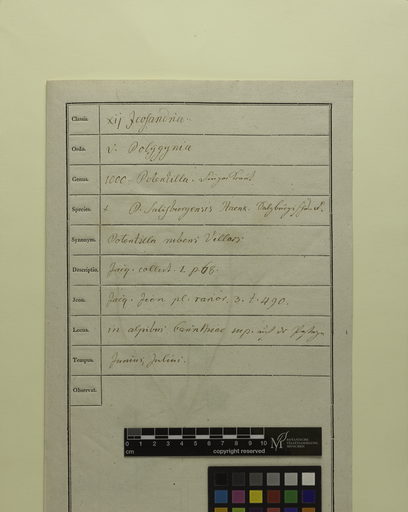 Classis. xij Icosandria.
Ordo. v. Polÿgynia
Genus. 1000 Potentilla.
Species. P. Salisburgensis Haenk.
Synonym. Potentilla rubens Villars:
Descriptio. Jacq. collect. 2. p. 68.
Icon. Jacq. Icon pl. rarior. 3. t. 490.
Locus. in alpibus Carinthiae sup. auf der
Tempus. Junius, Julius.
Observat.
0 1 2 3 4 5 6 7 8 9 10
cm copyright reserved
BOTANISCHE STAATSSAMMLUNG MÜNCHEN